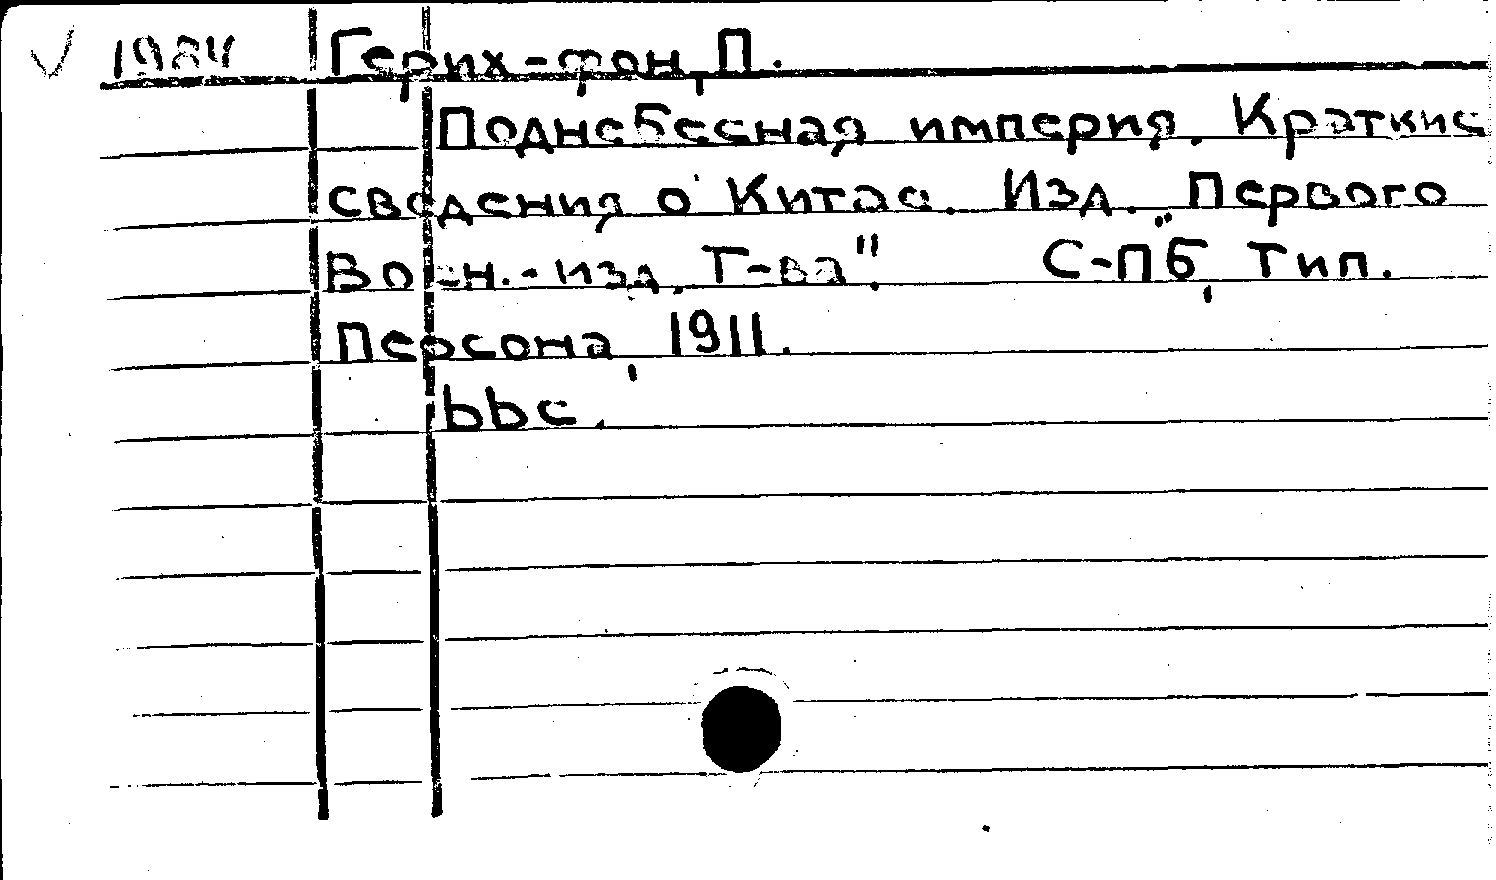 √ 1984 Герих-фон, П.
Поднебесная империя. Краткие
сведения о Китае. Изд. „Первого
Воен.-изд. Т-ва". С-Пб, Тип.
Персона, 1911.
ььс.